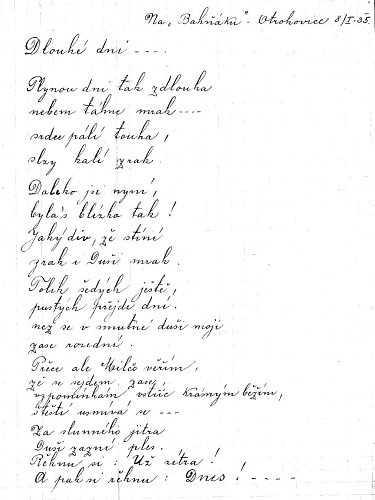 Na „Bahňáku" - Otrokovice 8/I-35.
Dlouhé dni ----
Plynou dni tak zdlouha
nebem táhne mrak ----
srdce pálí touha,
slzy kalí zrak.
Daleko jsi nyní,
byla's blízko tak!
Jaký div, že stíní
zrak i Duši mrak.
Tolik šedých ještě,
pustých přejde dní.
než se v smutné duši mojí
zase rozední.
Přece ale Milčo věřím,
že se sejdem zase,
vzpomínkám vstříc krásným běžím,
štěstí usmívá se ---
Za slunného jitra
Duší zazní ples.
Řeknu si: Už zítra!
A pak si řeknu: Dnes! -----